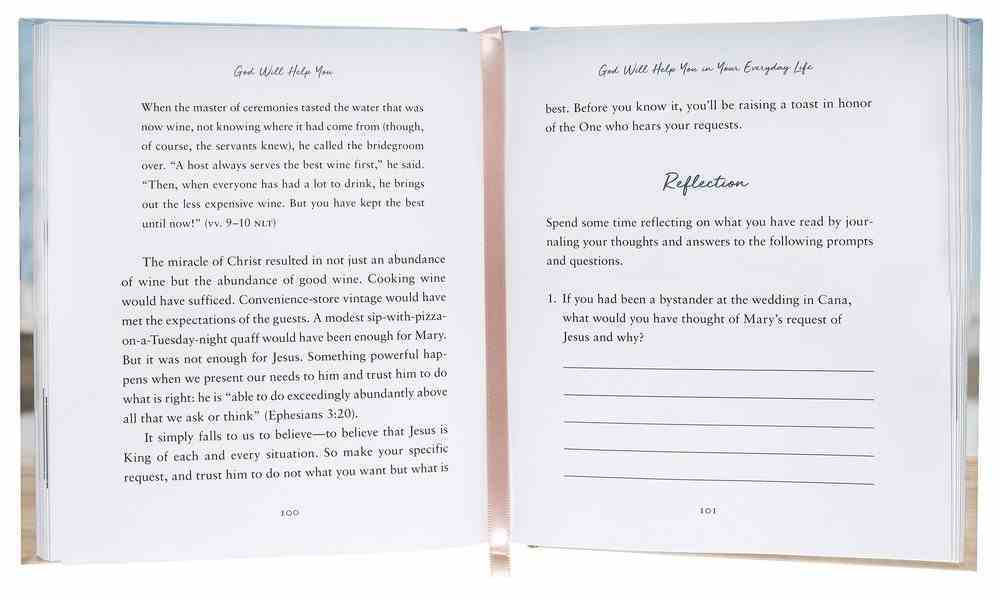 God Will Help You
When the master of ceremonies tasted the water that was
now wine, not knowing where it had come from (though,
of course, the servants knew), he called the bridegroom
over. “A host always serves the best wine first,” he said.
“Then, when everyone has had a lot to drink, he brings
out the less expensive wine. But you have kept the best
until now!” (vv. 9–10 NLT)
The miracle of Christ resulted in not just an abundance
of wine but the abundance of good wine. Cooking wine
would have sufficed. Convenience-store vintage would have
met the expectations of the guests. A modest sip-with-pizza-
on-a-Tuesday-night quaff would have been enough for Mary.
But it was not enough for Jesus. Something powerful hap-
pens when we present our needs to him and trust him to do
what is right: he is “able to do exceedingly abundantly above
all that we ask or think” (Ephesians 3:20).
It simply falls to us to believe—to believe that Jesus is
King of each and every situation. So make your specific
request, and trust him to do not what you want but what is
100
God Will Help You in Your Everyday Life
best. Before you know it, you’ll be raising a toast in honor
of the One who hears your requests.
Reflection
Spend some time reflecting on what you have read by jour-
naling your thoughts and answers to the following prompts
and questions.
1. If you had been a bystander at the wedding in Cana,
what would you have thought of Mary’s request of
Jesus and why?
101